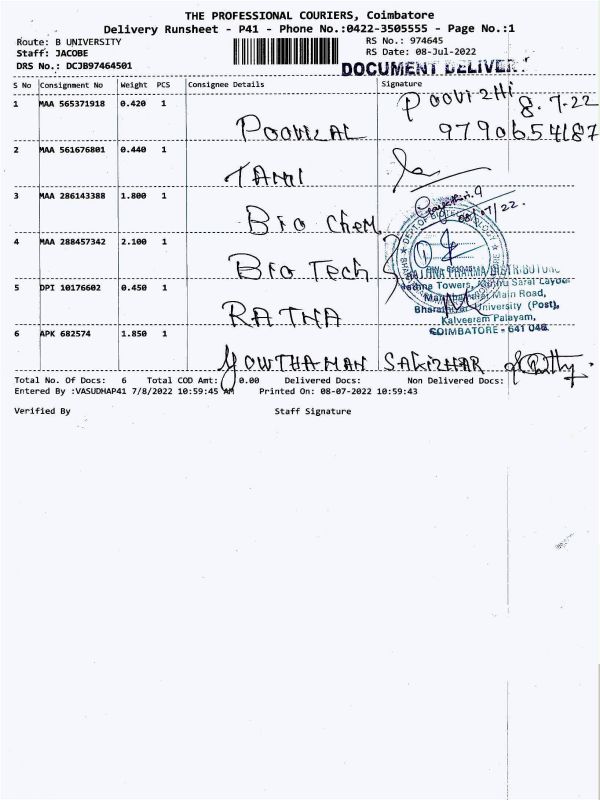 THE PROFESSIONAL COURIERS, Coimbatore
Delivery Runsheet - P41 - Phone No.:0422-3505555 - Page No.:1
Route: B UNIVERSITY RS No.: 974645
Staff: JACOBE RS Date: 08-Jul-2022
DRS No.: DCJB97464501 DOCUMENT DELIVERY
S No Consignment No Weight PCS Consignee Details Signature
1 MAA 565371918 0.420 1 POOVIZHI 8.7-22
9790654187
2 MAA 561676801 0.440 1
TAMIL
3 MAA 286143388 1.800 1 08/07/22.
Bio Chem
4 MAA 288457342 2.100 1
Bio Tech
RATHNA PHARMA DISTRIBUTORS
5 DPI 10176602 0.450 1 Towers, Layout
Main Road,
RATNA University (Post),
Kalveeram Palayam,
6 APK 682574 1.850 1 COIMBATORE - 641 046.
GOWTHAMAN
Total No. Of Docs: 6 Total COD Amt: 0.00 Delivered Docs: Non Delivered Docs:
Entered By :VASUDHAP41 7/8/2022 10:59:45 AM Printed On: 08-07-2022 10:59:43
Verified By Staff Signature